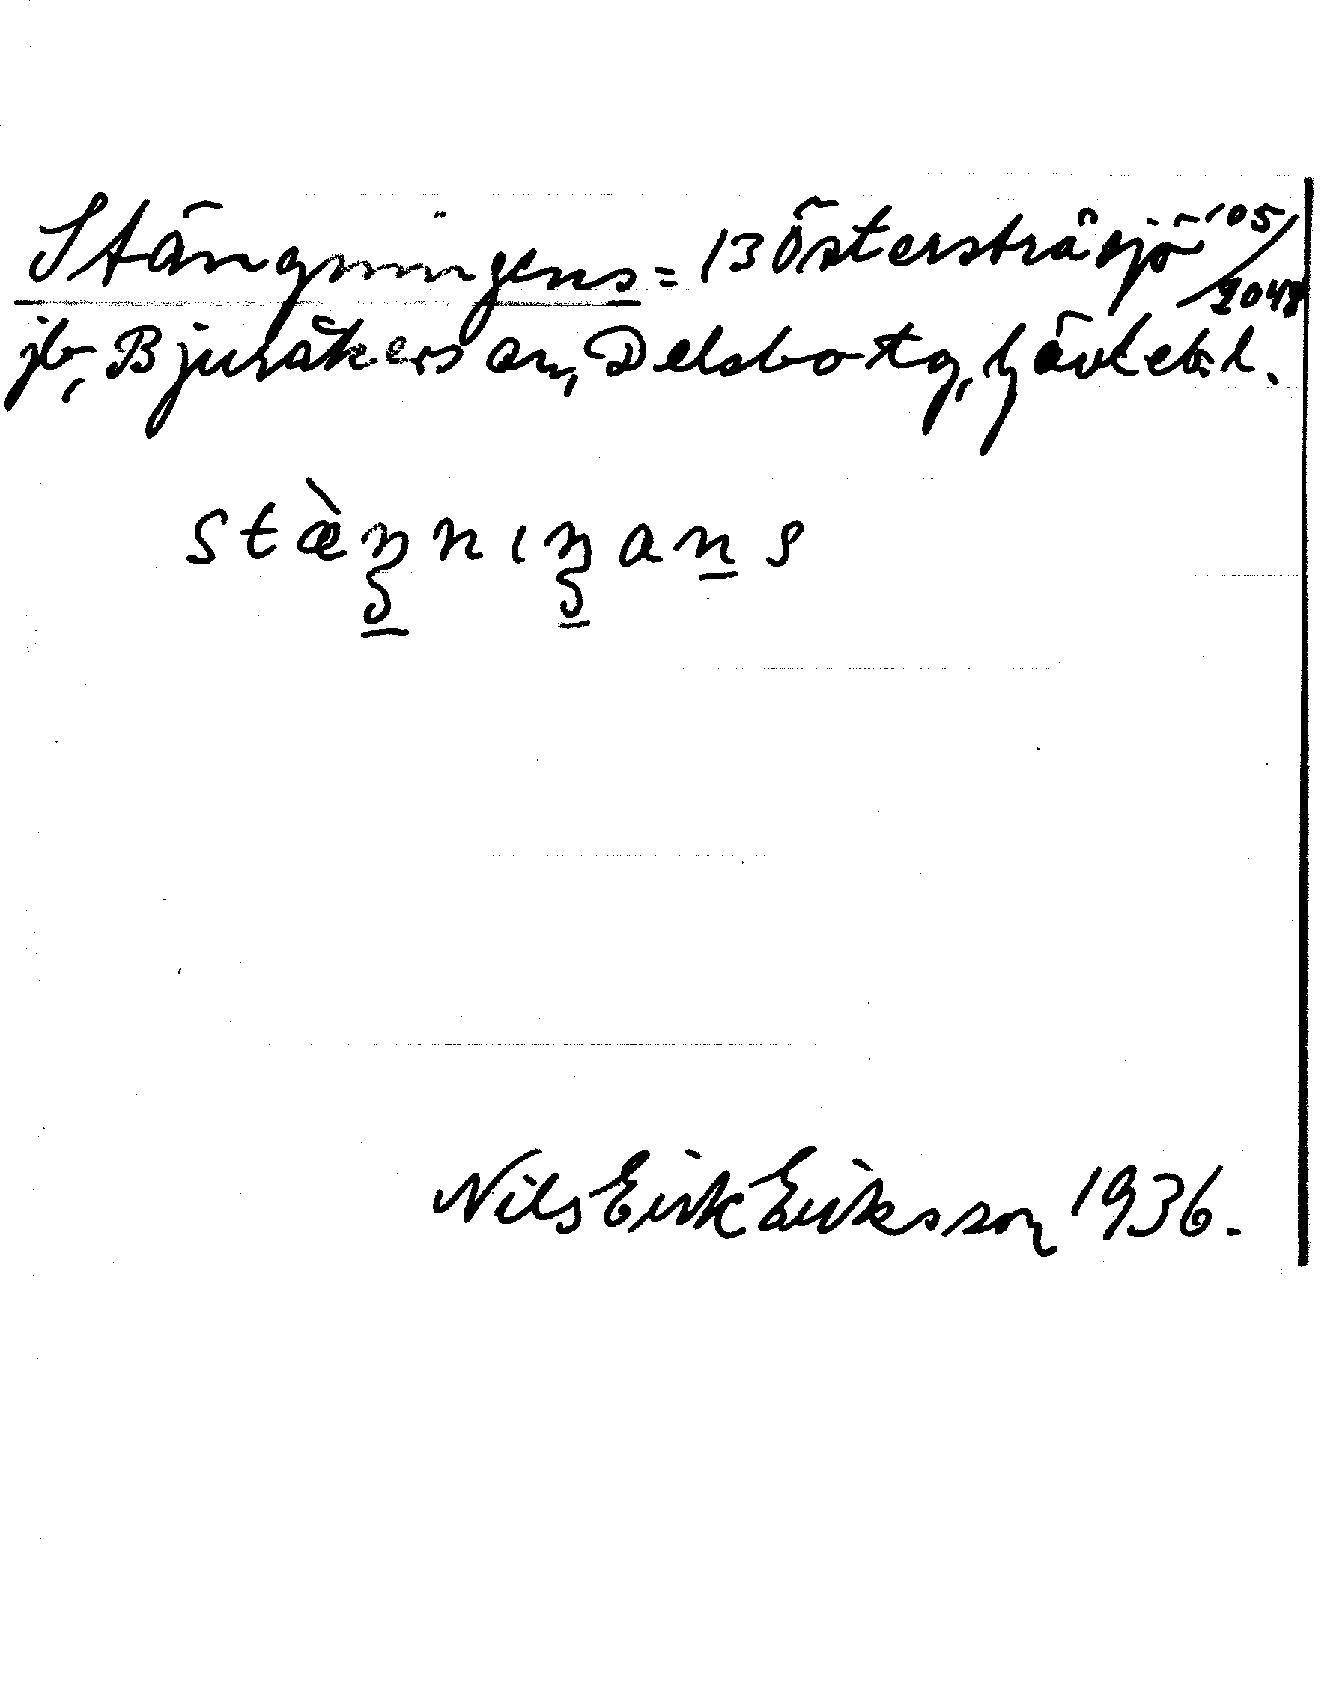 Stängningens = 13 Östersträsjö '05/2048
jb, Bjuråkers sn, Delsbo tg, Gävlebs. l.
stæ̀ŋnıŋans
Nils Erik Eriksson 1936.